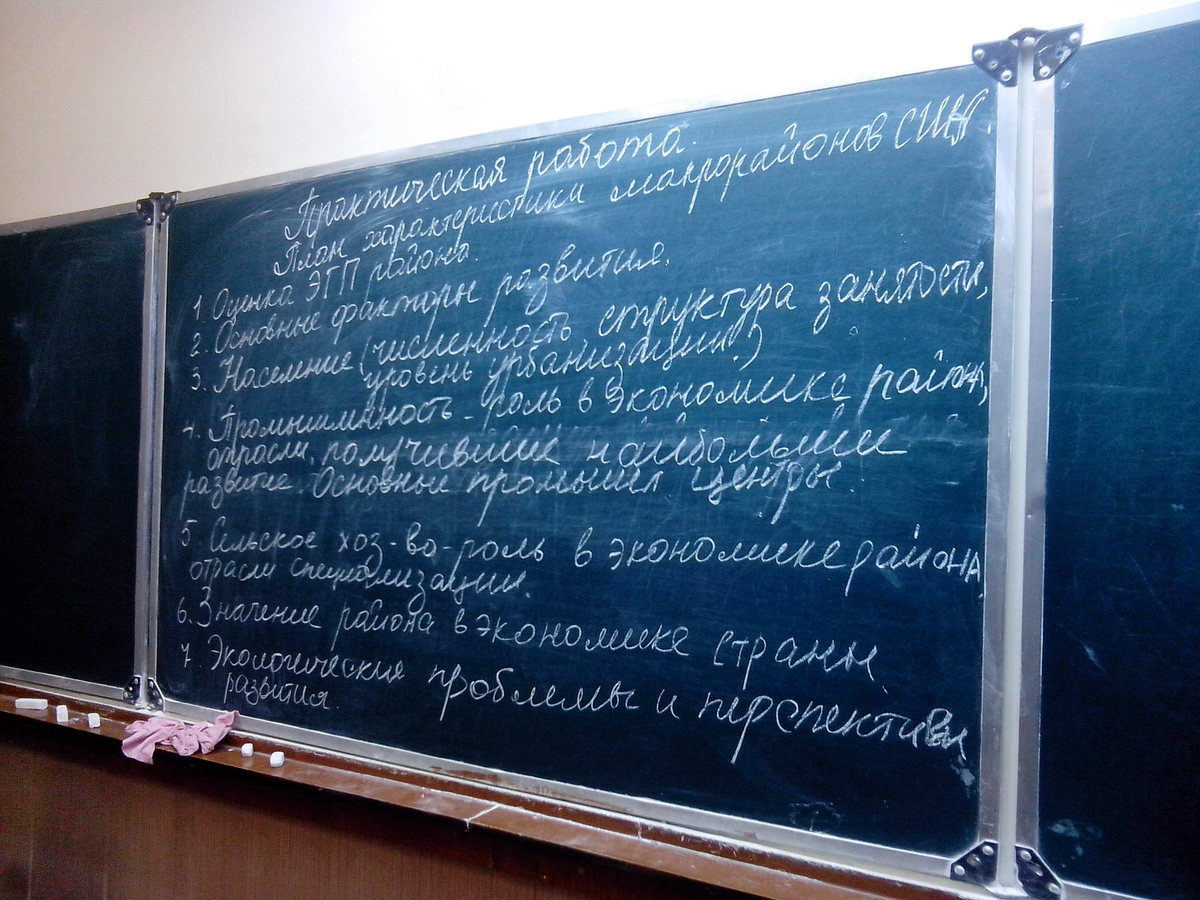 Практическая работа.
План характеристики макрорайонов США.
1. Оценка ЭГП района.
2. Основные факторы развития.
3. Население (численность, структура занятости,
уровень урбанизации.)
4. Промышленность - роль в экономике района,
отрасли, получившие наибольшии
развитие. Основные промышл центры.
5. Сельское хоз-во - роль в экономике района,
отрасли специализации.
6. Значение района в экономике страны.
7. Экологические проблемы и перспективы
развития.